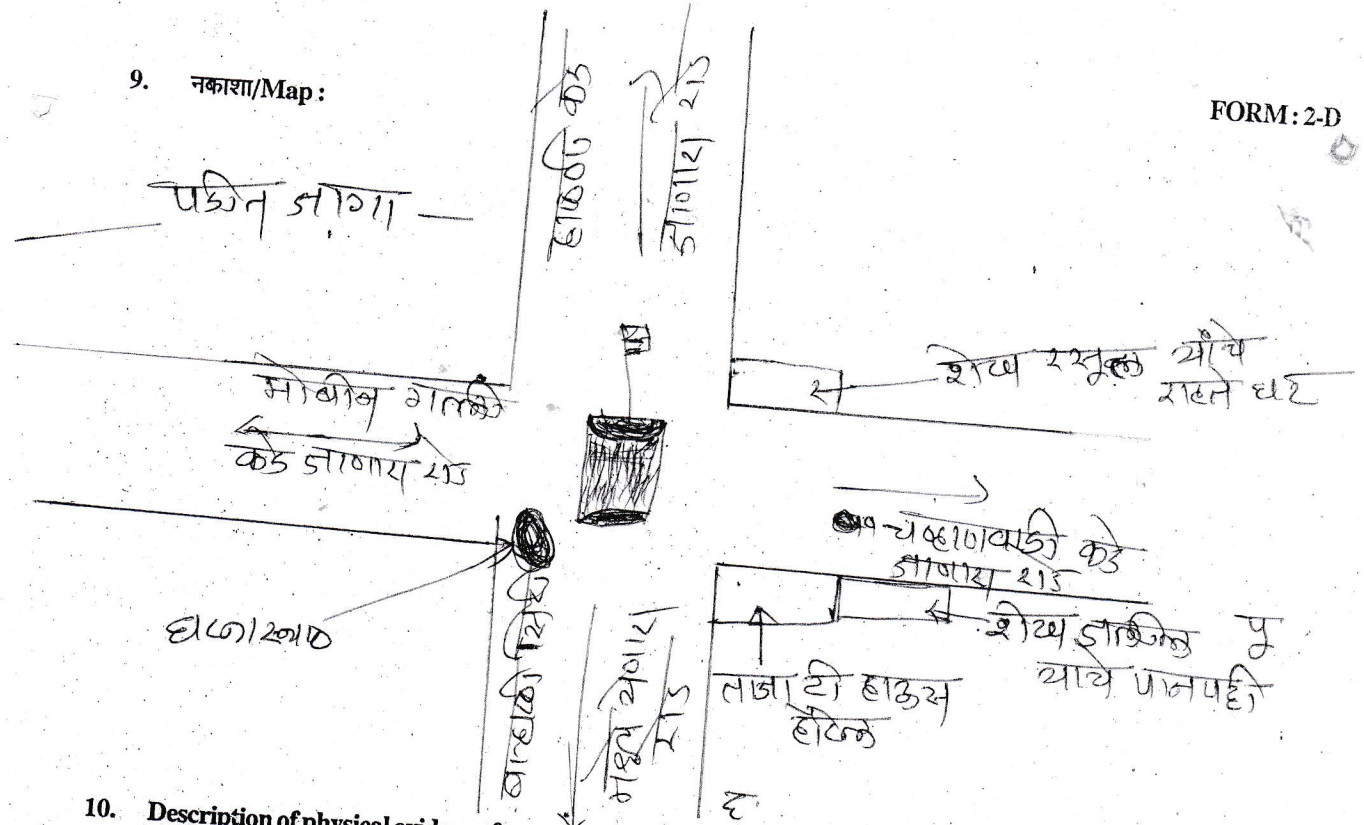 9. नकाशा/Map :
FORM : 2-D
पडीत जागा
कडे
जाणारा रोड
मोबीन गल्ली
कडे जाणारा रोड
शेख रसूल यांचे
राहते घर
चव्हाणवाडी कडे
जाणारा रोड
घटनास्थळ
शेख
पू
याचे पानपट्टी
ताजा टी हाऊस
हॉटेल
येणारा
रोड
द
10. Description of physical